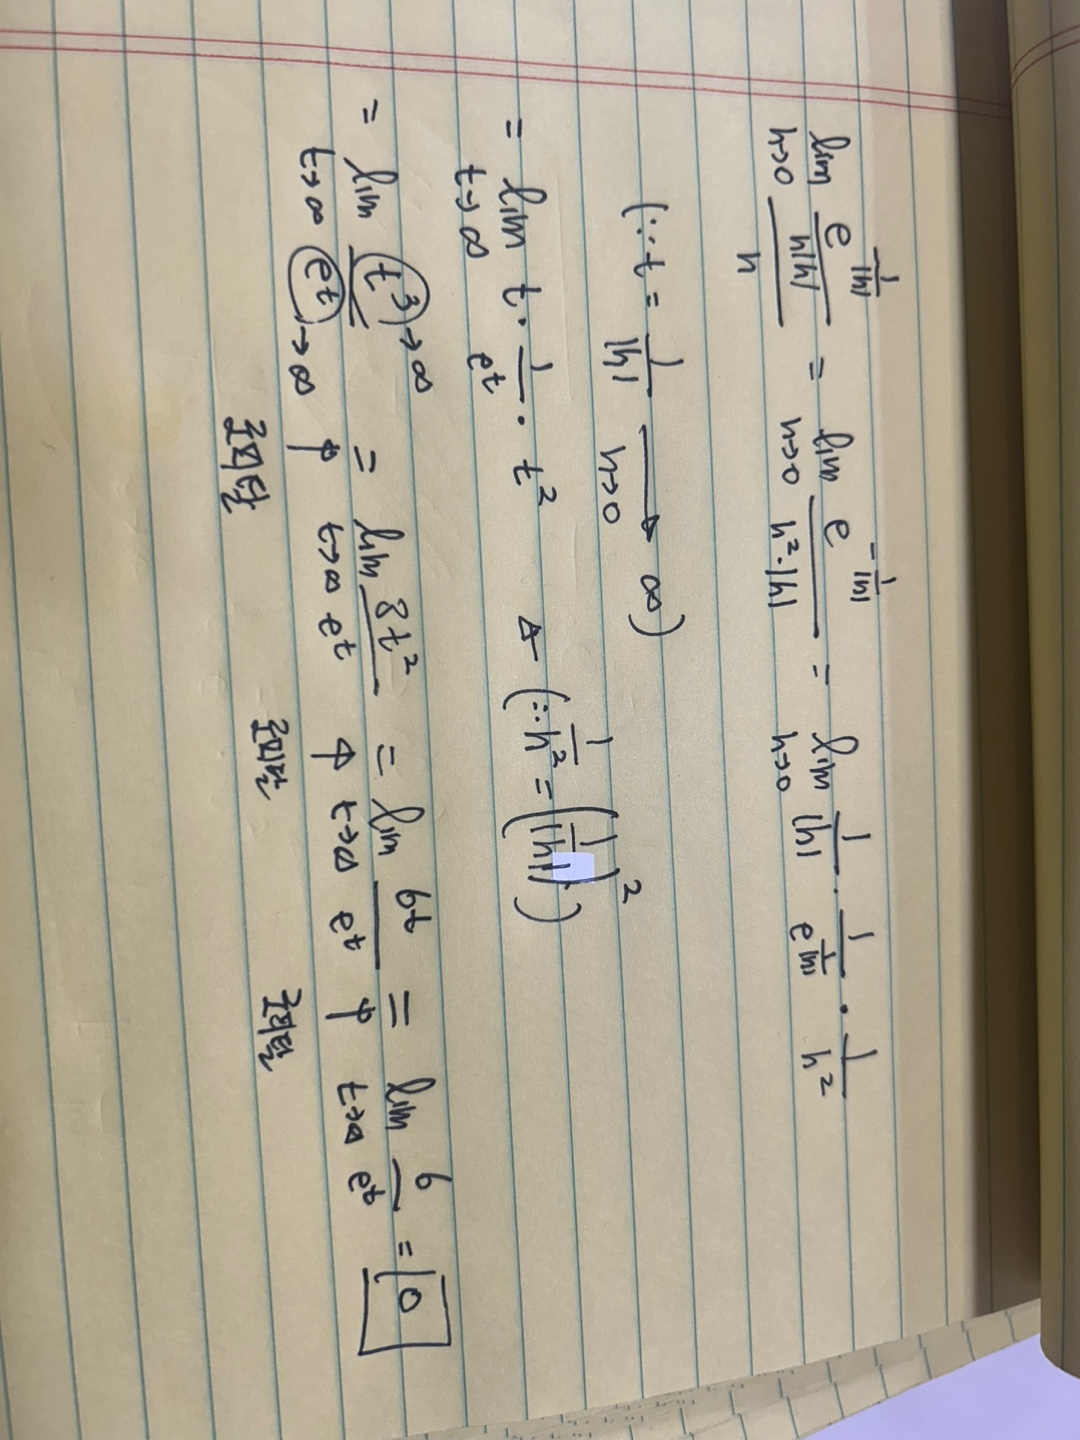 lim_{h→0} \frac{\frac{e^{-\frac{1}{|h|}}}{h|h|}}{h} = lim_{h→0} \frac{e^{-\frac{1}{|h|}}}{h^2·|h|} = lim_{h→0} \frac{1}{|h|} · \frac{1}{e^{\frac{1}{|h|}}} · \frac{1}{h^2}
(∵ t = \frac{1}{|h|} \xrightarrow{h→0} ∞)
= lim_{t→∞} t · \frac{1}{e^t} · t^2 ← (∵ \frac{1}{h^2} = (\frac{1}{|h|})^2)
= lim_{t→∞} \frac{t^3 → ∞}{e^t → ∞} = lim_{t→∞} \frac{3t^2}{e^t} = lim_{t→∞} \frac{6t}{e^t} = lim_{t→∞} \frac{6}{e^t} = 0
↑ 로피탈 ↑ 로피탈 ↑ 로피탈